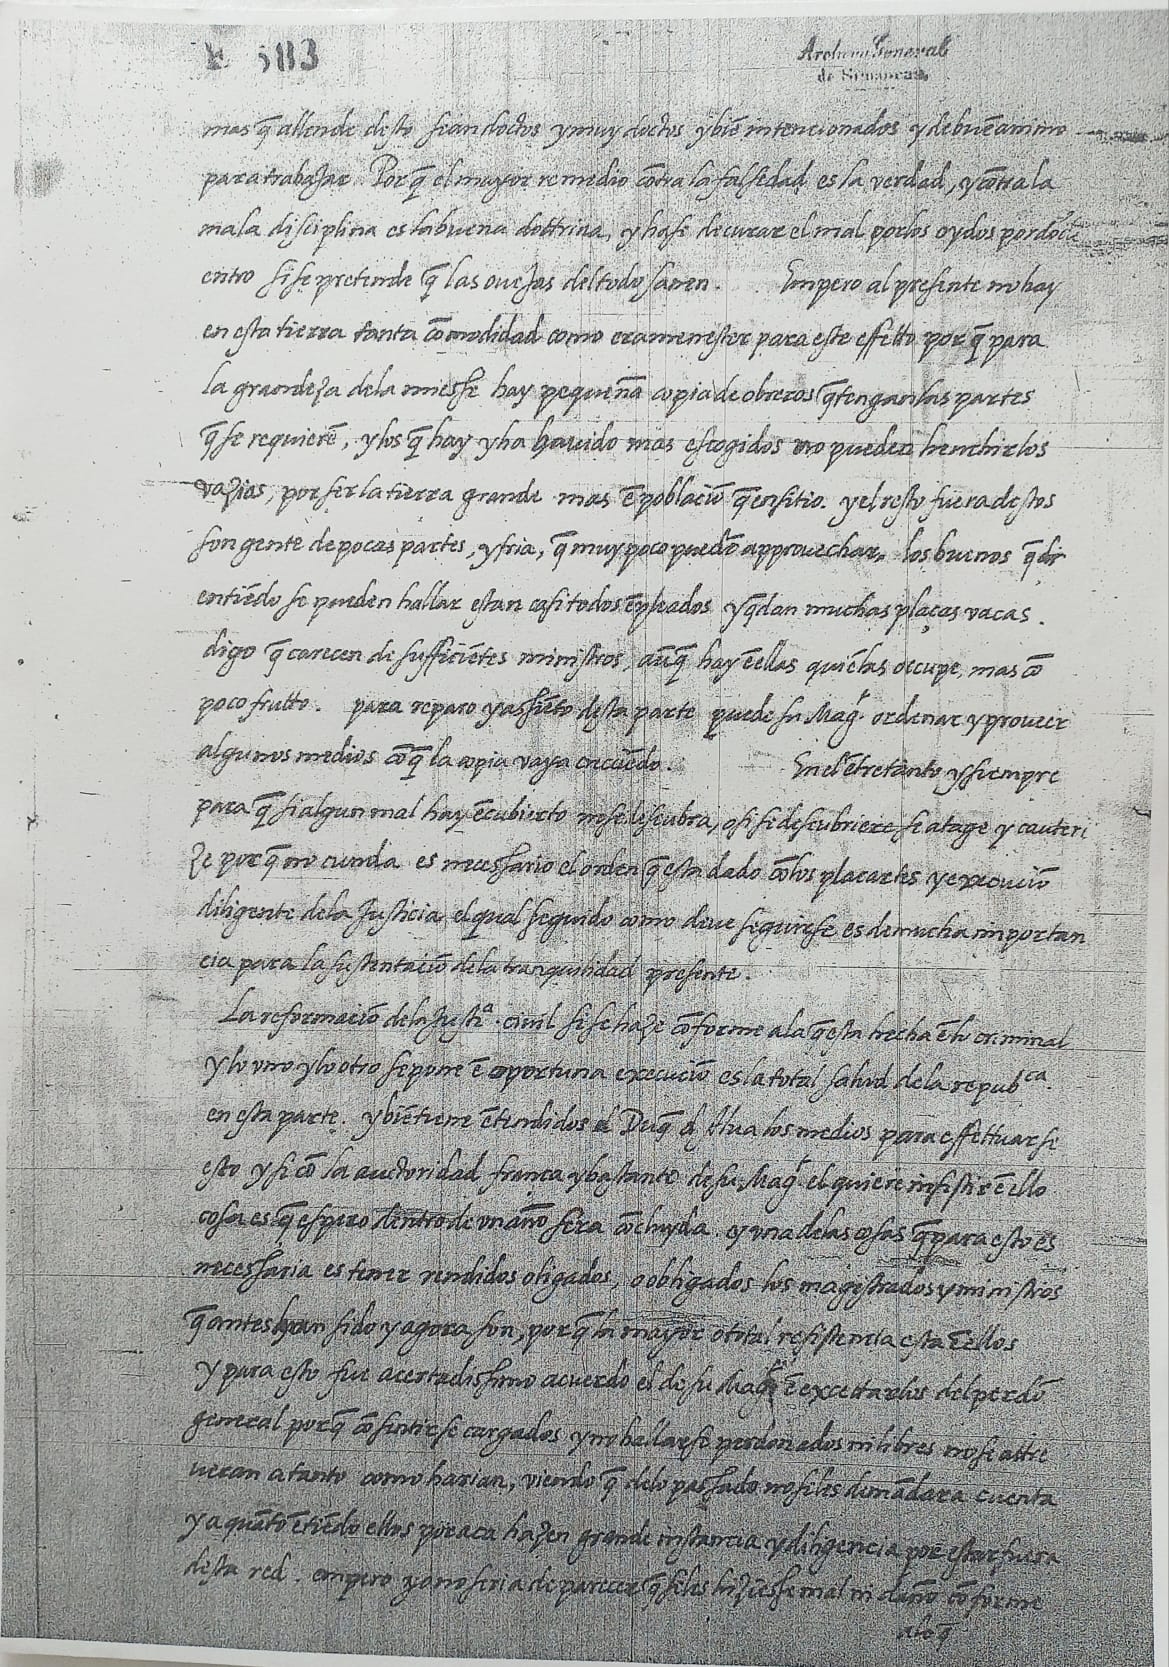 E 583
Archivo General
de Simancas
mas q̄ allende desto sean doctos y muy doctos y biē intencionados y de buē animo
para trabajar. Por q̄ el mayor remedio cōtra la falsedad es la verdad, y cōtra la
mala disciplina es la buena dottrina, y hase de curar el mal por los oydos por dōde
entro si se pretende q̄ las ovejas del todo sanen. Empero al presente no hay
en esta tierra tanta cōmodidad como era menester para este effetto por q̄ para
la grandeza de la miesse hay pequeña copia de obreros q̄ tengan las partes
q̄ se requierē, y los q̄ hay y ha havido mas escogidos no pueden henchir los
vazios, por ser la tierra grande mas ē poblaciō q̄ en sitio. y el resto fuera destos
son gente de pocas partes, y fria, q̄ muy poco puedē approvechar. los buenos q̄ dis
entiēdo se pueden hallar estan casi todos ēpleados y q̄dan muchas plaças vacas.
digo q̄ carecen de sufficiētes ministros, aūq̄ hay ē ellas quiē las occupe, mas cō
poco frutto. para reparo y assiēto desta parte puede su Mag.ᵈ ordenar y proveer
algunos medios cō q̄ la copia vaya creciēdo. En el ētretanto y siempre
para q̄ si algun mal hay ēcubierto no se descubra, o si se descubriere se ataje y cauteri
ze por q̄ no cunda es necessario el orden q̄ esta dado cō los placartes y execuciō
diligente de la Justicia, el qual seguido como deve seguirse es de mucha importan
cia para la sustentaciō de la tranquilidad presente.
La reformaciō de la Justi.ᵃ civil si se haze cōforme a la q̄ esta hecha ē lo criminal
y lo uno y lo otro se pone ē oportuna execuciō es la total salud de la repub.ᶜᵃ
en esta parte. y biē tiene ētendidos el Duq̄ d Alva los medios para effettuarse
esto y si cō la auctoridad franca y bastante de su Mag.ᵈ el quiere insistir ē ello
cosa es q̄ espero dentro de un año sera cōcluyda. y una de las cosas q̄ para esto es
necessaria es tener rendidos oligados, o obligados los magistrados y ministros
q̄ antes han sido y agora son, por q̄ la mayor o total resistencia esta ē ellos
y para esto fue acertadissimo acuerdo el de su Mag.ᵈ ē excettarlos del perdō
general porq̄ cō sentirse cargados y no hallarse perdonados ni libres no se attre
veran a tanto como harian, viendo q̄ de lo passado no se les demādara cuenta
y a quāto ētiēdo ellos por aca hazen grande instancia y diligencia por estar fuera
desta red. empero yo no seria de parecer q̄ se les hiziesse mal ni daño cōforme
a lo q̄